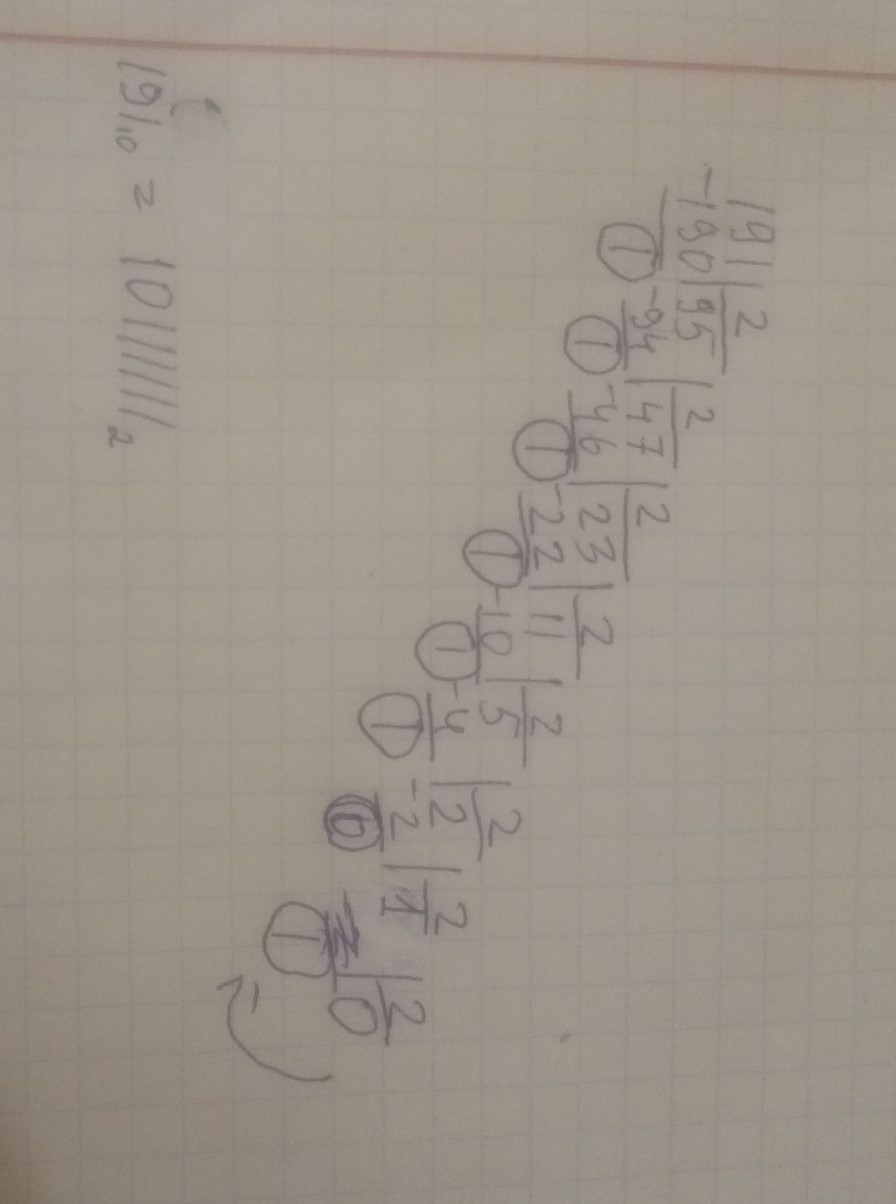 191 | 2
-190 | 95 | 2
1 -94 | 47 | 2
1 -46 | 23 | 2
1 -22 | 11 | 2
1 -10 | 5 | 2
1 -4 | 2 | 2
1 -2 | 1 | 2
0 | 0 | 2
1
191₁₀ = 10111111₂